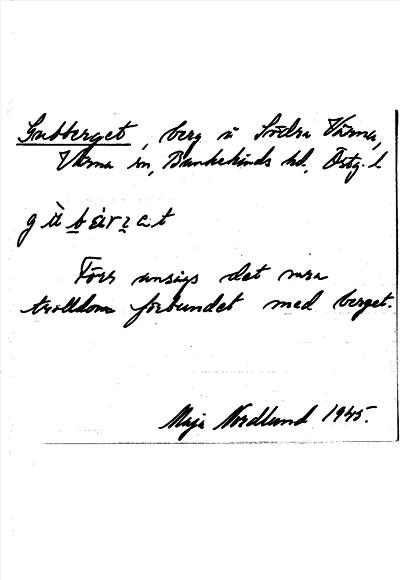 Gubberget, berg i Södra Värna,
Värna sn, Bankekinds hd, Östg. l
Förr ansågs det vara
trolldom förbundet med berget.
Maja Nordlund 1945.